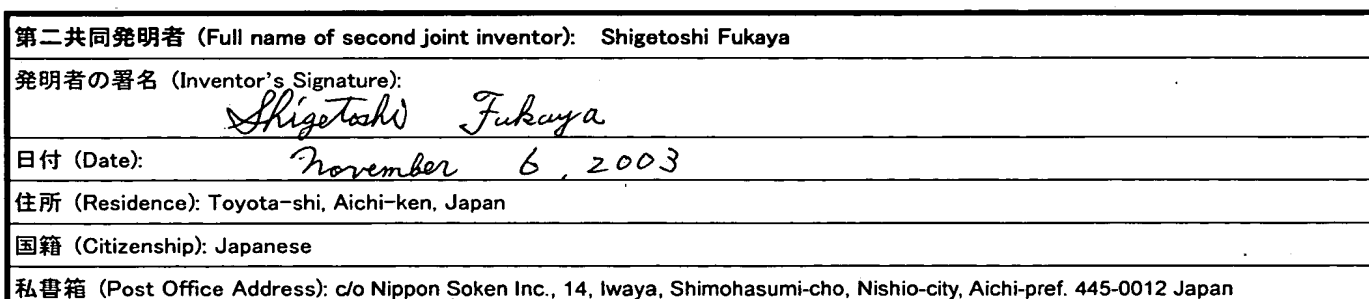 第二共同発明者 (Full name of second joint inventor): Shigetoshi Fukaya
発明者の署名 (Inventor's Signature):
Shigetoshi Fukaya
日付 (Date): November 6, 2003
住所 (Residence): Toyota-shi, Aichi-ken, Japan
国籍 (Citizenship): Japanese
私書箱 (Post Office Address): c/o Nippon Soken Inc., 14, Iwaya, Shimohasumi-cho, Nishio-city, Aichi-pref. 445-0012 Japan